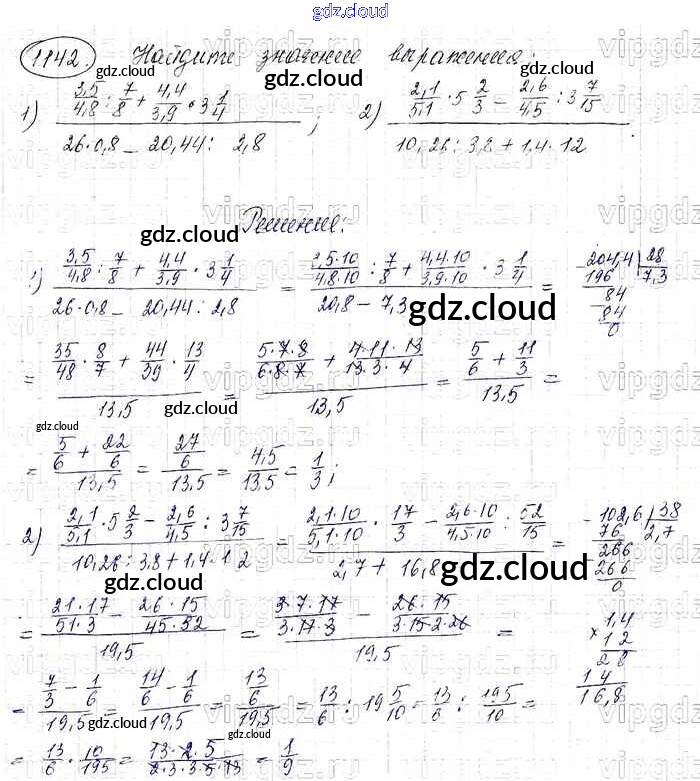 gdz.cloud
1142. Найдите значение выражения:
1) (3,5/4,8 : 7/8 + 4,4/3,9 · 3 1/4) / (26·0,8 − 20,44 : 2,8) ; 2) (2,1/5,1 · 5 2/3 − 2,6/4,5 : 3 7/15) / (10,26 : 3,8 + 1,4·12) .
Решение:
1) (3,5/4,8 : 7/8 + 4,4/3,9 · 3 1/4) / (26·0,8 − 20,44 : 2,8) = (3,5·10/4,8·10 : 7/8 + 4,4·10/3,9·10 · 3 1/4) / (20,8 − 7,3) =
204,4 | 28
196 7,3
84
84
0
= (35/48 · 8/7 + 44/39 · 13/4) / 13,5 = (5·7·8/6·8·7 + 4·11·13/13·3·4) / 13,5 = (5/6 + 11/3) / 13,5 =
= (5/6 + 22/6) / 13,5 = (27/6) / 13,5 = 4,5/13,5 = 1/3;
2) (2,1/5,1 · 5 2/3 − 2,6/4,5 : 3 7/15) / (10,26 : 3,8 + 1,4·12) = (2,1·10/5,1·10 · 17/3 − 2,6·10/4,5·10 : 52/15) / (2,7 + 16,8) =
102,6 | 38
76 2,7
266
266
0
= (21·17/51·3 − 26·15/45·52) / 19,5 = (3·7·17/3·17·3 − 26·15/3·15·2·26) / 19,5 =
1,4
× 12
28
14
16,8
= (7/3 − 1/6) / 19,5 = (14/6 − 1/6) / 19,5 = (13/6) / 19,5 = 13/6 : 19 5/10 = 13/6 : 195/10 =
= 13/6 · 10/195 = 13·2·5/2·3·3·5·13 = 1/9